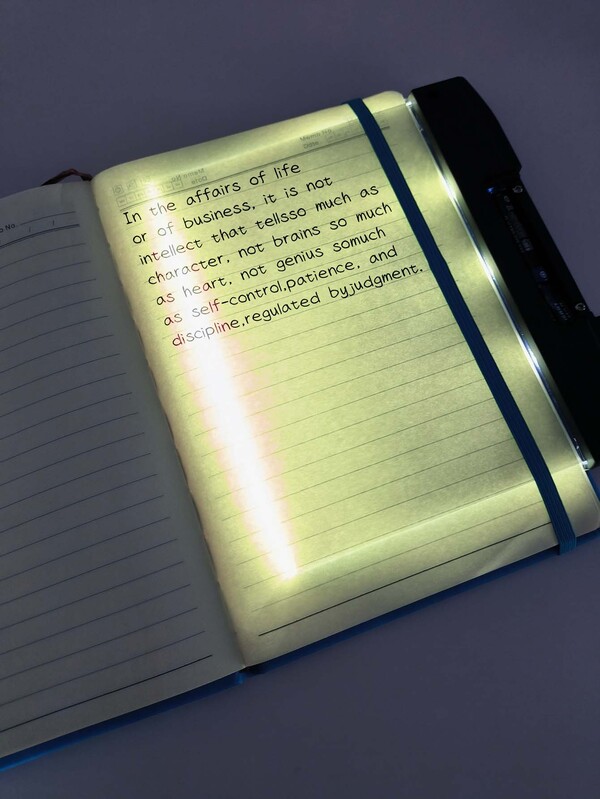 o No.
Memo No.
Date
In the affairs of life
or of business, it is not
intellect that tellsso much as
character, not brains so much
as heart, not genius somuch
as self-control,patience, and
discipline,regulated byjudgment.